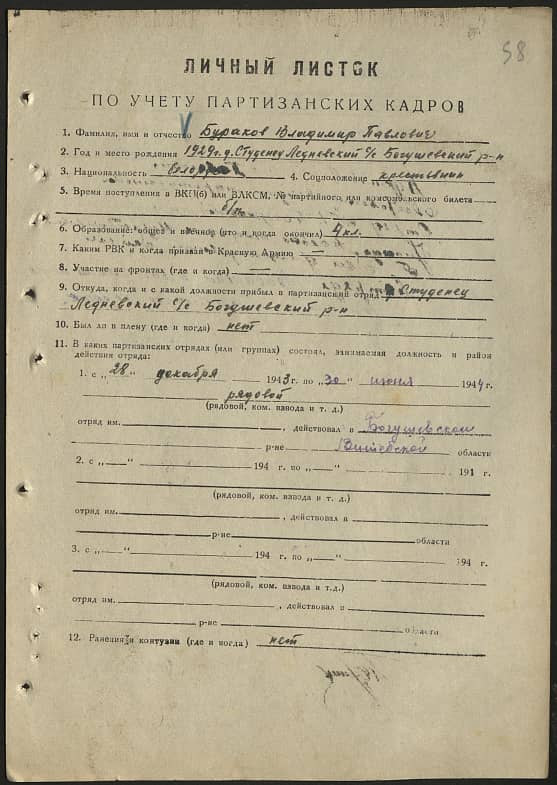 58
ЛИЧНЫЙ ЛИСТОК
ПО УЧЕТУ ПАРТИЗАНСКИХ КАДРОВ
1. Фамилия, имя и отчество Бураков Владимир Павлович
2. Год и место рождения 1929г. д. Студенец Ледневский с/с Богушевский р-н
3. Национальность белорус 4. Соцположение крестьянин
5. Время поступления в ВКП(б) или ВЛКСМ, № партийного или комсомольского билета
б/п
6. Образование: общее и военное (что и когда окончил) 4 кл.
7. Каким РВК и когда призван в Красную Армию —
8. Участие на фронтах (где и когда) —
9. Откуда, когда и с какой должности прибыл в партизанский отряд д. Студенец
Ледневский с/с Богушевский р-н
10. Был ли в плену (где и когда) нет
11. В каких партизанских отрядах (или группах) состоял, занимаемая должность и район
действия отряда:
1. с „28" декабря 1943г. по „30" июня 1944г.
рядовой
(рядовой, ком. взвода и т. д.)
отряд им. , действовал в Богушевском
р-не Витебской области
2. с „—" 194 г. по „—" 191 г.
(рядовой, ком. взвода и т. д.)
отряд им. , действовал в
р-не области
3. с „—" 194 г. по „—" 194 г.
(рядовой, ком. взвода и т.д.)
отряд им. , действовал в
р-не области
12. Ранения и контузии (где и когда) нет